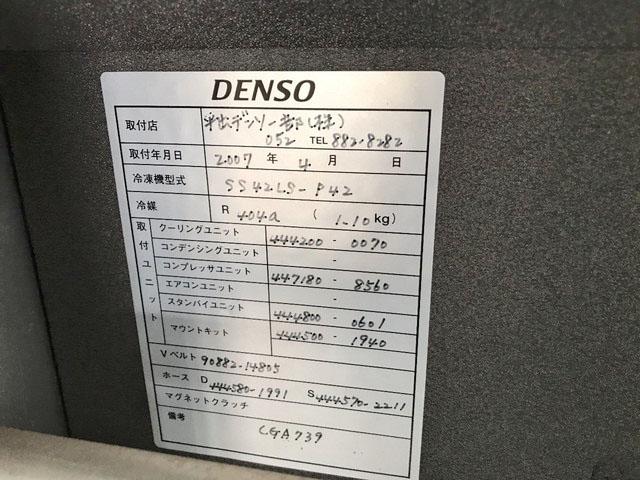 DENSO
取付店
052 TEL 882-8282
取付年月日 2007 年 4 月 日
冷凍機型式 SS42LS-P42
冷媒 R 404a ( 1.10 kg)
取付ユニット
クーリングユニット 444200-0070
コンデンシングユニット -
コンプレッサユニット 447180-8560
エアコンユニット -
スタンバイユニット 444800-0601
マウントキット 444500-1940
Vベルト 90882-14805
ホース D 444580-1991 S 444570-2211
マグネットクラッチ
備考 CGA739